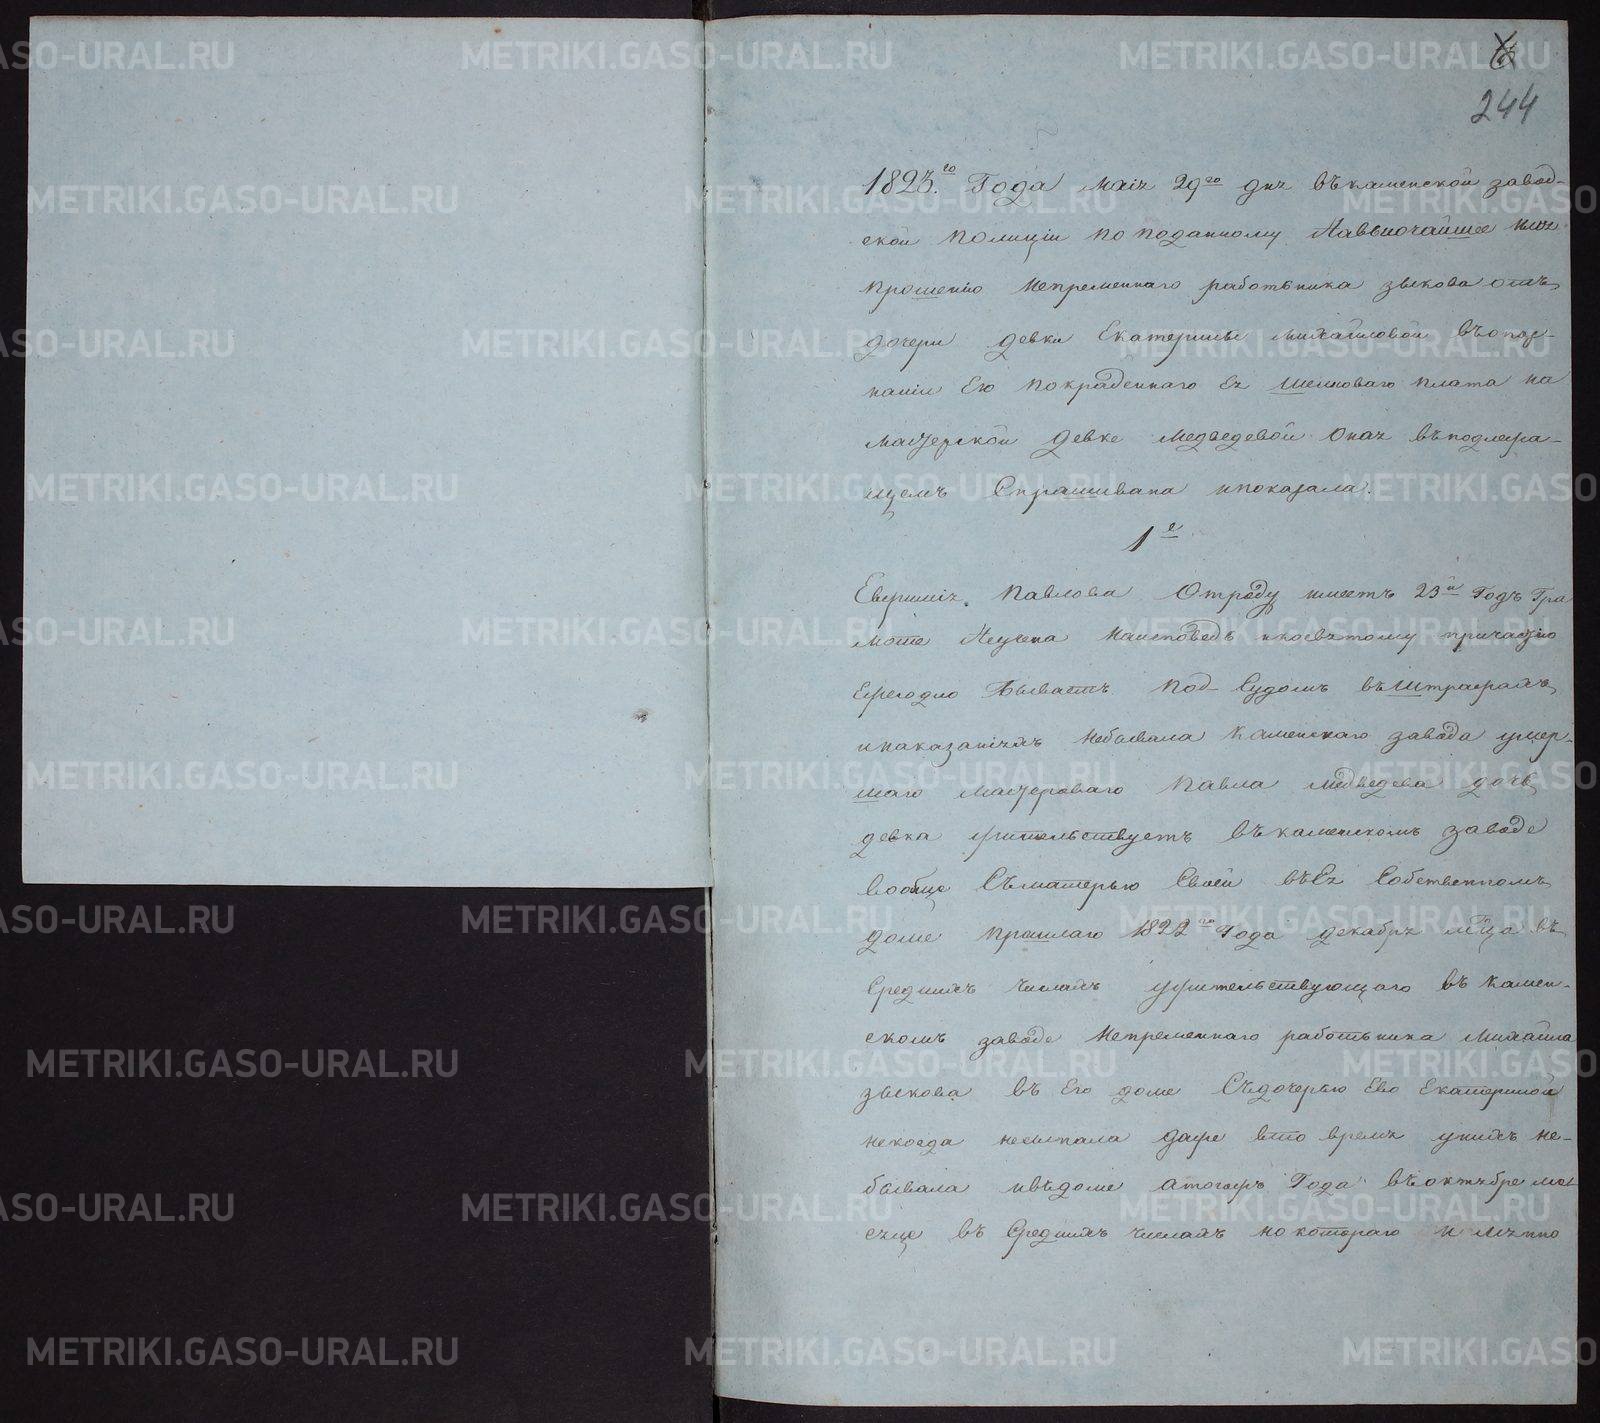 244
1823.го Года маія 29го дня въ каменской завод-
ской полиціи по поданному На высочайшее имя
прошенію непременнаго работьника зыкова отъ
дочери девки Екатерины михайловой въ опоз-
наніи Ею покраденнаго Ея шелковаго плата на
мастерской девке медведевой оная въ подлежа-
щемъ Спрашивана и показала.
1е
Евфимія Павлова Отроду имеетъ 23й Годъ Гра
моте Неучена наисповедь икосвятому причастію
Ежегодно бываетъ под Судомъ въ Штрафахъ
инаказаніяхъ небывала каменскаго завода умер-
шаго мастероваго Павла медведева дочь
девка жительствуетъ въ каменскомъ заводе
вообще Съматерью Своей въ Ея Собственномъ
доме прошлаго 1822го Года декабря мца въ
Средиихъ числахъ жительствующаго въ камен-
скомъ заводе непременнаго работьника михайла
зыкова въ Его доме Съдочерью Ево Екатериной
некогда неспала даже вто время унихъ не-
бывала ивъдоме атогожъ Года въоктябре ме-
сяце въ Средиихъ числахъ но котораго и мянно